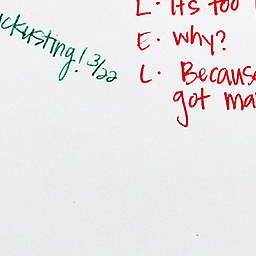 ckusting! 3/22
L. its too
E. why?
L. Because
got ma